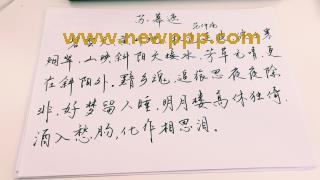 苏幕遮
范仲淹
www.newppp.com
烟翠，山映斜阳天接水，芳草无情，更
在斜阳外。黯乡魂，追旅思，夜夜除
非，好梦留人睡，明月楼高休独倚，
酒入愁肠，化作相思泪。